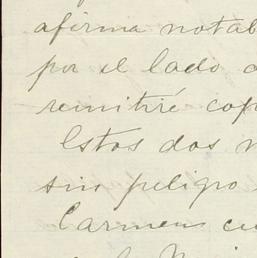 afirma notab
por el lado
remitiré cop
Estos dos
sin peligro
Carmen cu